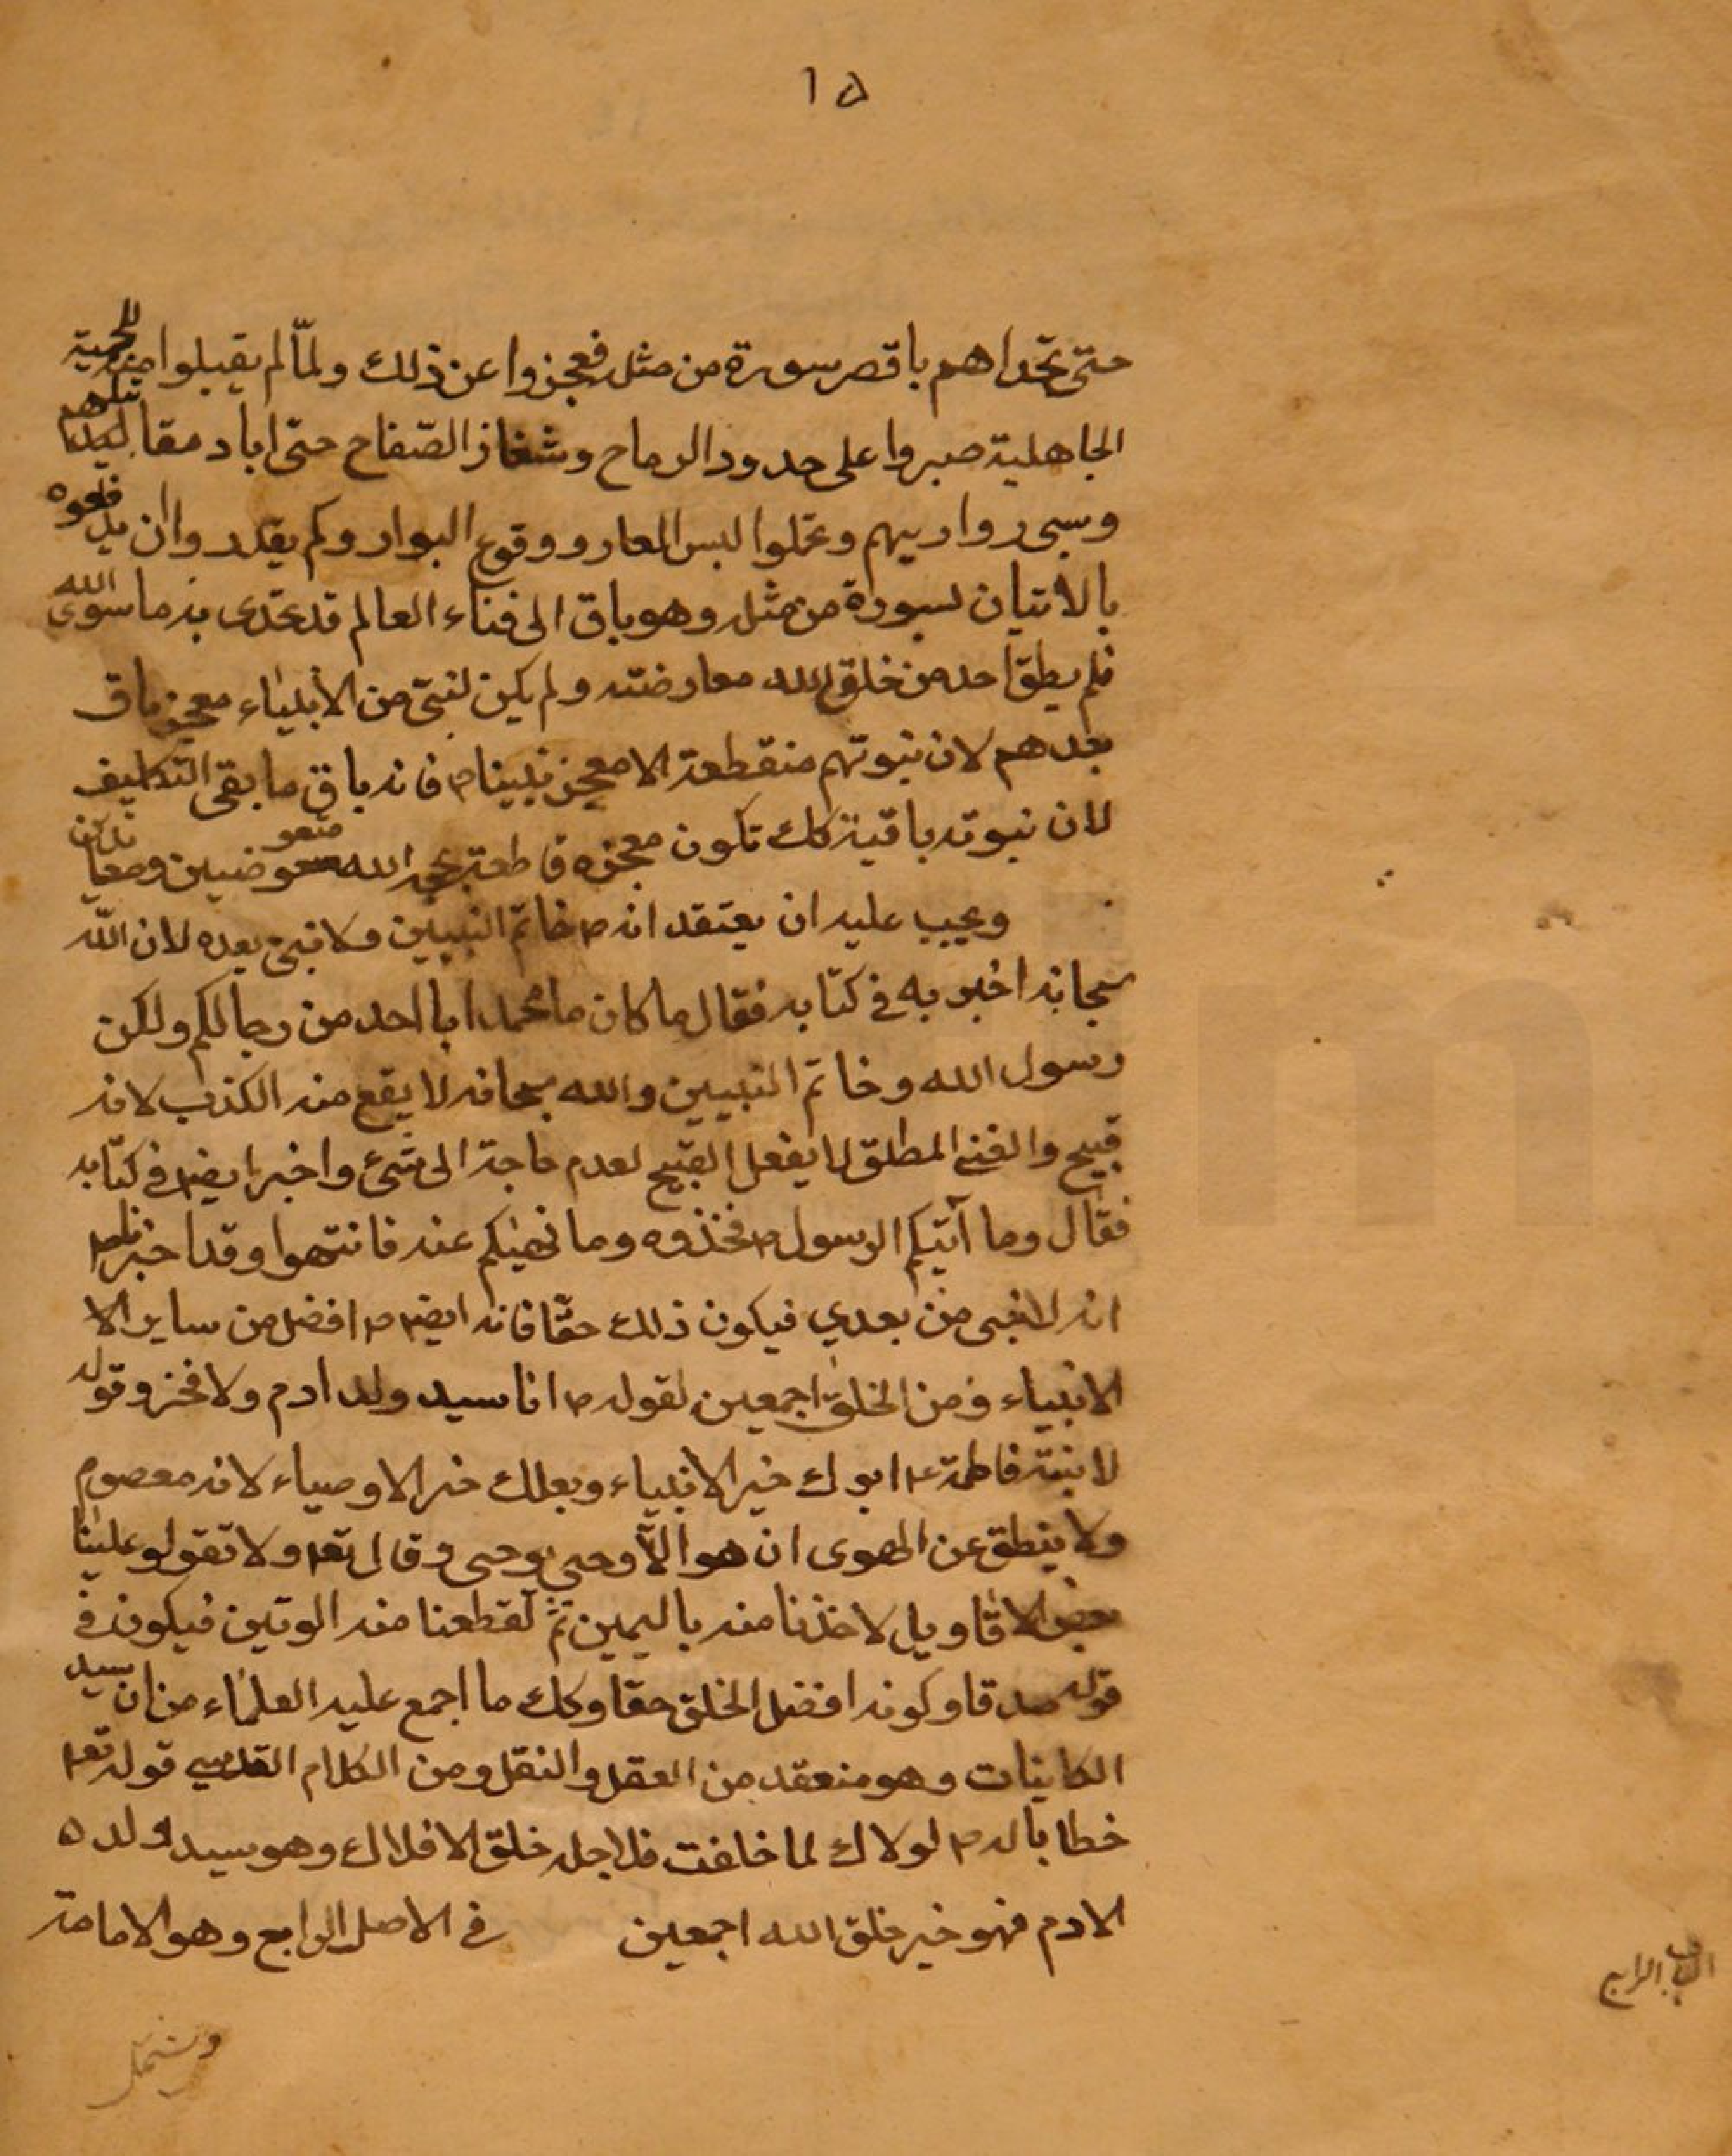 ١٥
حتى تحداهم باقصر سورة من مثله فعجزوا عن ذلك ولمّا لم يقبلوا منه لحمية
الجاهلية صبروا على حدود الرماح وشفار الصّفاح حتى اباد مقاتليهم
وسبى ذراريهم وتحملوا لبس العار ووقوع البوار ولم يقدروا ان يدفعوه
بالاتيان بسورة من مثله وهو باق الى فناء العالم قد تحدى به ما سوى الله
فلم يطق احد من خلق الله معارضته ولم يكن لنبيّ من الأنبياء معجز باق
بعدهم لان نبوتهم منقطعة الا معجز نبينا ص فانه باق ما بقى التكليف
لان نبوته باقية كك تكون معجزه قاطعة بحمد الله معوضيين ومعاندين
ويجب عليه ان يعتقد انه ص خاتم النبيين ولا نبيّ بعده لان الله
سبحانه اخبر به في كتابه فقال ما كان ما محمد ابا احد من رجالكم ولكن
رسول الله وخاتم النبيين والله سبحانه لا يقع منه الكذب لانه
قبيح والغني المطلق لا يفعل القبيح لعدم حاجة الى شيء واخبر ايضا في كتابه
فقال وما آتيكم الرسول ص فخذوه وما نهيكم عنه فانتهوا وقد اخبرنا ص
انه لا نبى من بعدي فيكون ذلك حقّا فانه ايضا ص افضل من ساير الا
الانبياء ومن الخلق اجمعين لقوله ص انا سيد ولد ادم ولا فخر وقوله
لابنته فاطمة ع ابوك خير الانبياء وبعلك خير الاوصياء لانه معصوم
ولا ينطق عن الهوى ان هو الّا وحي يوحى وقال تع ولا تقولو علينا
بعض الاقاويل لاخذنا منه باليمين ثمّ لقطعنا منه الوتين فيكون في
قوله صدقا وكونه افضل الخلق حقا وكك ما اجمع عليه العلماء من ان سيد
الكاينات وهو منعقد من العقل والنقل ومن الكلام القدسي قوله تع
خطابا له ص لولاك لما خلقت فلاجله خلق الافلاك وهو سيد ولده
الادم فهو خير خلق الله اجمعين في الاصل الرابع وهو الامامة
الباب الرابع
ويشتمل